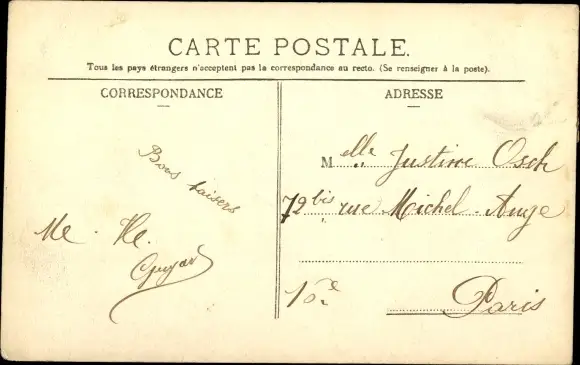 CARTE POSTALE.
Tous les pays étrangers n'acceptent pas la correspondance au recto. (Se renseigner à la poste).
CORRESPONDANCE
Bons baisers
ADRESSE
Melle Justine Osch
72bis rue Michel-Ange
16e
Paris